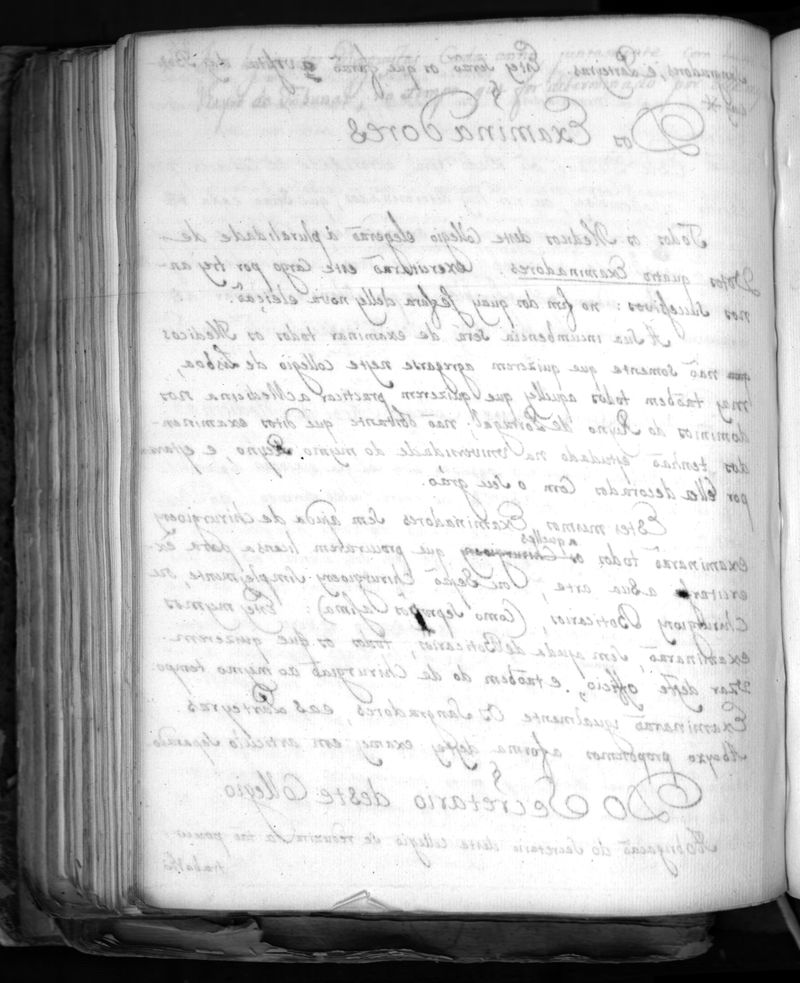 Sangradores, e Parteiras. Estes serão os que farão a vezita das Bo-
*
§
Dos Examinadores
Todos os Medicos deste Collegio elegerão á pluralidade de
Votos quatro Examinadores: exercitarão este cargo por trez an-
nos sucessivos: no fim dos quaiz se fara delles nova eleição.
A sua incumbencia será de examinar todos os Medicos
não somente que quizerem agregarse neste collegio de Lisboa,
may taõbem todos aquelles que quizerem practicar a Medicina nos
dominios do Reyno de Portugal; não obstante que ditos examinan-
dos tenhão estudado na Universidade do mesmo Reyno, e
por ella decorados com o seu grao.
Estes mesmos Examinadores sem ajuda de Chirurgioens
aquelles
examinarão todos os Chirurgioens que procurarem licensa para ex-
a sua arte, ou sejão Chirurgioens simplesmente, ou
Chirurgioens Boticarios, (como assima): Estes mesmos
examinarão, sem ajuda de Boticarios, todos os que quizerem
uzar deste officio, e taõbem do da Chirurgia ao mesmo tempo.
Examinarão igualmente os Sangradores, e as Parteyras.
Abayxo proporemos a forma destes exames em articulo separado
§
Do Secretario deste Collegio
A obrigação do Secretario deste collegio se
trabalho